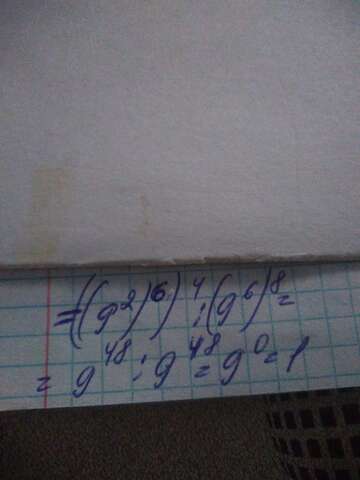 =((9²)⁶)⁴:(9⁶)⁸=
=9⁴⁸:9⁴⁸=9⁰=1